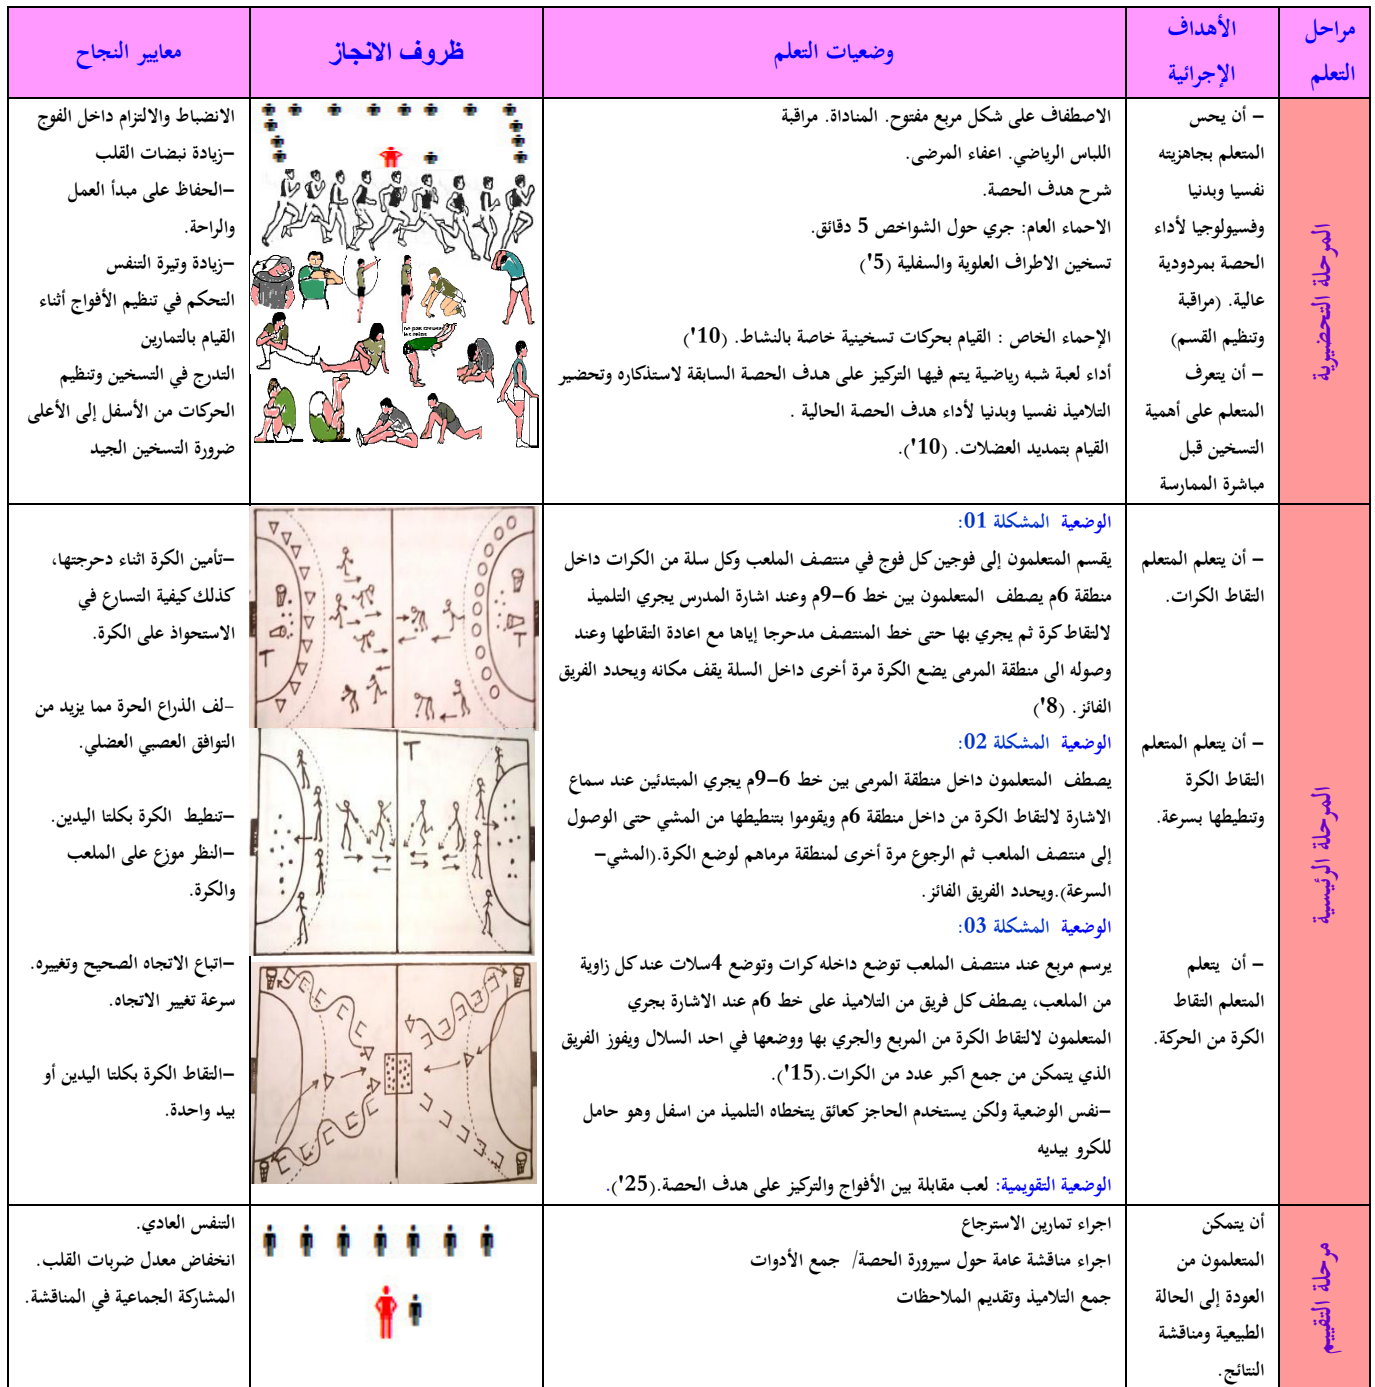 مراحل
التعلم
الأهداف
الإجرائية
وضعيات التعلم
ظروف الانجاز
معايير النجاح
المرحلة التحضيرية
– أن يحس
المتعلم بجاهزيته
نفسيا وبدنيا
وفسيولوجيا لأداء
الحصة بمردودية
عالية. (مراقبة
وتنظيم القسم)
– أن يتعرف
المتعلم على أهمية
التسخين قبل
مباشرة الممارسة
الاصطفاف على شكل مربع مفتوح. المناداة. مراقبة
اللباس الرياضي. اعفاء المرضى.
شرح هدف الحصة.
الاحماء العام: جري حول الشواخص 5 دقائق.
تسخين الاطراف العلوية والسفلية (5')
الإحماء الخاص : القيام بحركات تسخينية خاصة بالنشاط. (10')
أداء لعبة شبه رياضية يتم فيها التركيز على هدف الحصة السابقة لاستذكاره وتحضير
التلاميذ نفسيا وبدنيا لأداء هدف الحصة الحالية .
القيام بتمديد العضلات. (10').
الانضباط والالتزام داخل الفوج
–زيادة نبضات القلب
–الحفاظ على مبدأ العمل
والراحة.
–زيادة وتيرة التنفس
التحكم في تنظيم الأفواج أثناء
القيام بالتمارين
التدرج في التسخين وتنظيم
الحركات من الأسفل إلى الأعلى
ضرورة التسخين الجيد
المرحلة الرئيسية
– أن يتعلم المتعلم
التقاط الكرات.
– أن يتعلم المتعلم
التقاط الكرة
وتنطيطها بسرعة.
– أن يتعلم
المتعلم التقاط
الكرة من الحركة.
الوضعية المشكلة 01:
يقسم المتعلمون إلى فوجين كل فوج في منتصف الملعب وكل سلة من الكرات داخل
منطقة 6م يصطف المتعلمون بين خط 6–9م وعند اشارة المدرس يجري التلميذ
لالتقاط كرة ثم يجري بها حتى خط المنتصف مدحرجا إياها مع اعادة التقاطها وعند
وصوله الى منطقة المرمى يضع الكرة مرة أخرى داخل السلة يقف مكانه ويحدد الفريق
الفائز. (8')
الوضعية المشكلة 02:
يصطف المتعلمون داخل منطقة المرمى بين خط 6–9م يجري المبتدئين عند سماع
الاشارة لالتقاط الكرة من داخل منطقة 6م ويقوموا بتنطيطها من المشي حتى الوصول
إلى منتصف الملعب ثم الرجوع مرة أخرى لمنطقة مرماهم لوضع الكرة.(المشي–
السرعة).ويحدد الفريق الفائز.
الوضعية المشكلة 03:
يرسم مربع عند منتصف الملعب توضع داخله كرات وتوضع 4سلات عند كل زاوية
من الملعب، يصطف كل فريق من التلاميذ على خط 6م عند الاشارة بجري
المتعلمون لالتقاط الكرة من المربع والجري بها ووضعها في احد السلال ويفوز الفريق
الذي يتمكن من جمع اكبر عدد من الكرات.(15').
–نفس الوضعية ولكن يستخدم الحاجز كعائق يتخطاه التلميذ من اسفل وهو حامل
للكرو بيديه
الوضعية التقويمية: لعب مقابلة بين الأفواج والتركيز على هدف الحصة.(25').
–تأمين الكرة اثناء دحرجتها،
كذلك كيفية التسارع في
الاستحواذ على الكرة.
–لف الذراع الحرة مما يزيد من
التوافق العصبي العضلي.
–تنطيط الكرة بكلتا اليدين.
–النظر موزع على الملعب
والكرة.
–اتباع الاتجاه الصحيح وتغييره.
سرعة تغيير الاتجاه.
–التقاط الكرة بكلتا اليدين أو
بيد واحدة.
مرحلة التقييم
أن يتمكن
المتعلمون من
العودة إلى الحالة
الطبيعية ومناقشة
النتائج.
اجراء تمارين الاسترجاع
اجراء مناقشة عامة حول سيرورة الحصة/ جمع الأدوات
جمع التلاميذ وتقديم الملاحظات
التنفس العادي.
انخفاض معدل ضربات القلب.
المشاركة الجماعية في المناقشة.